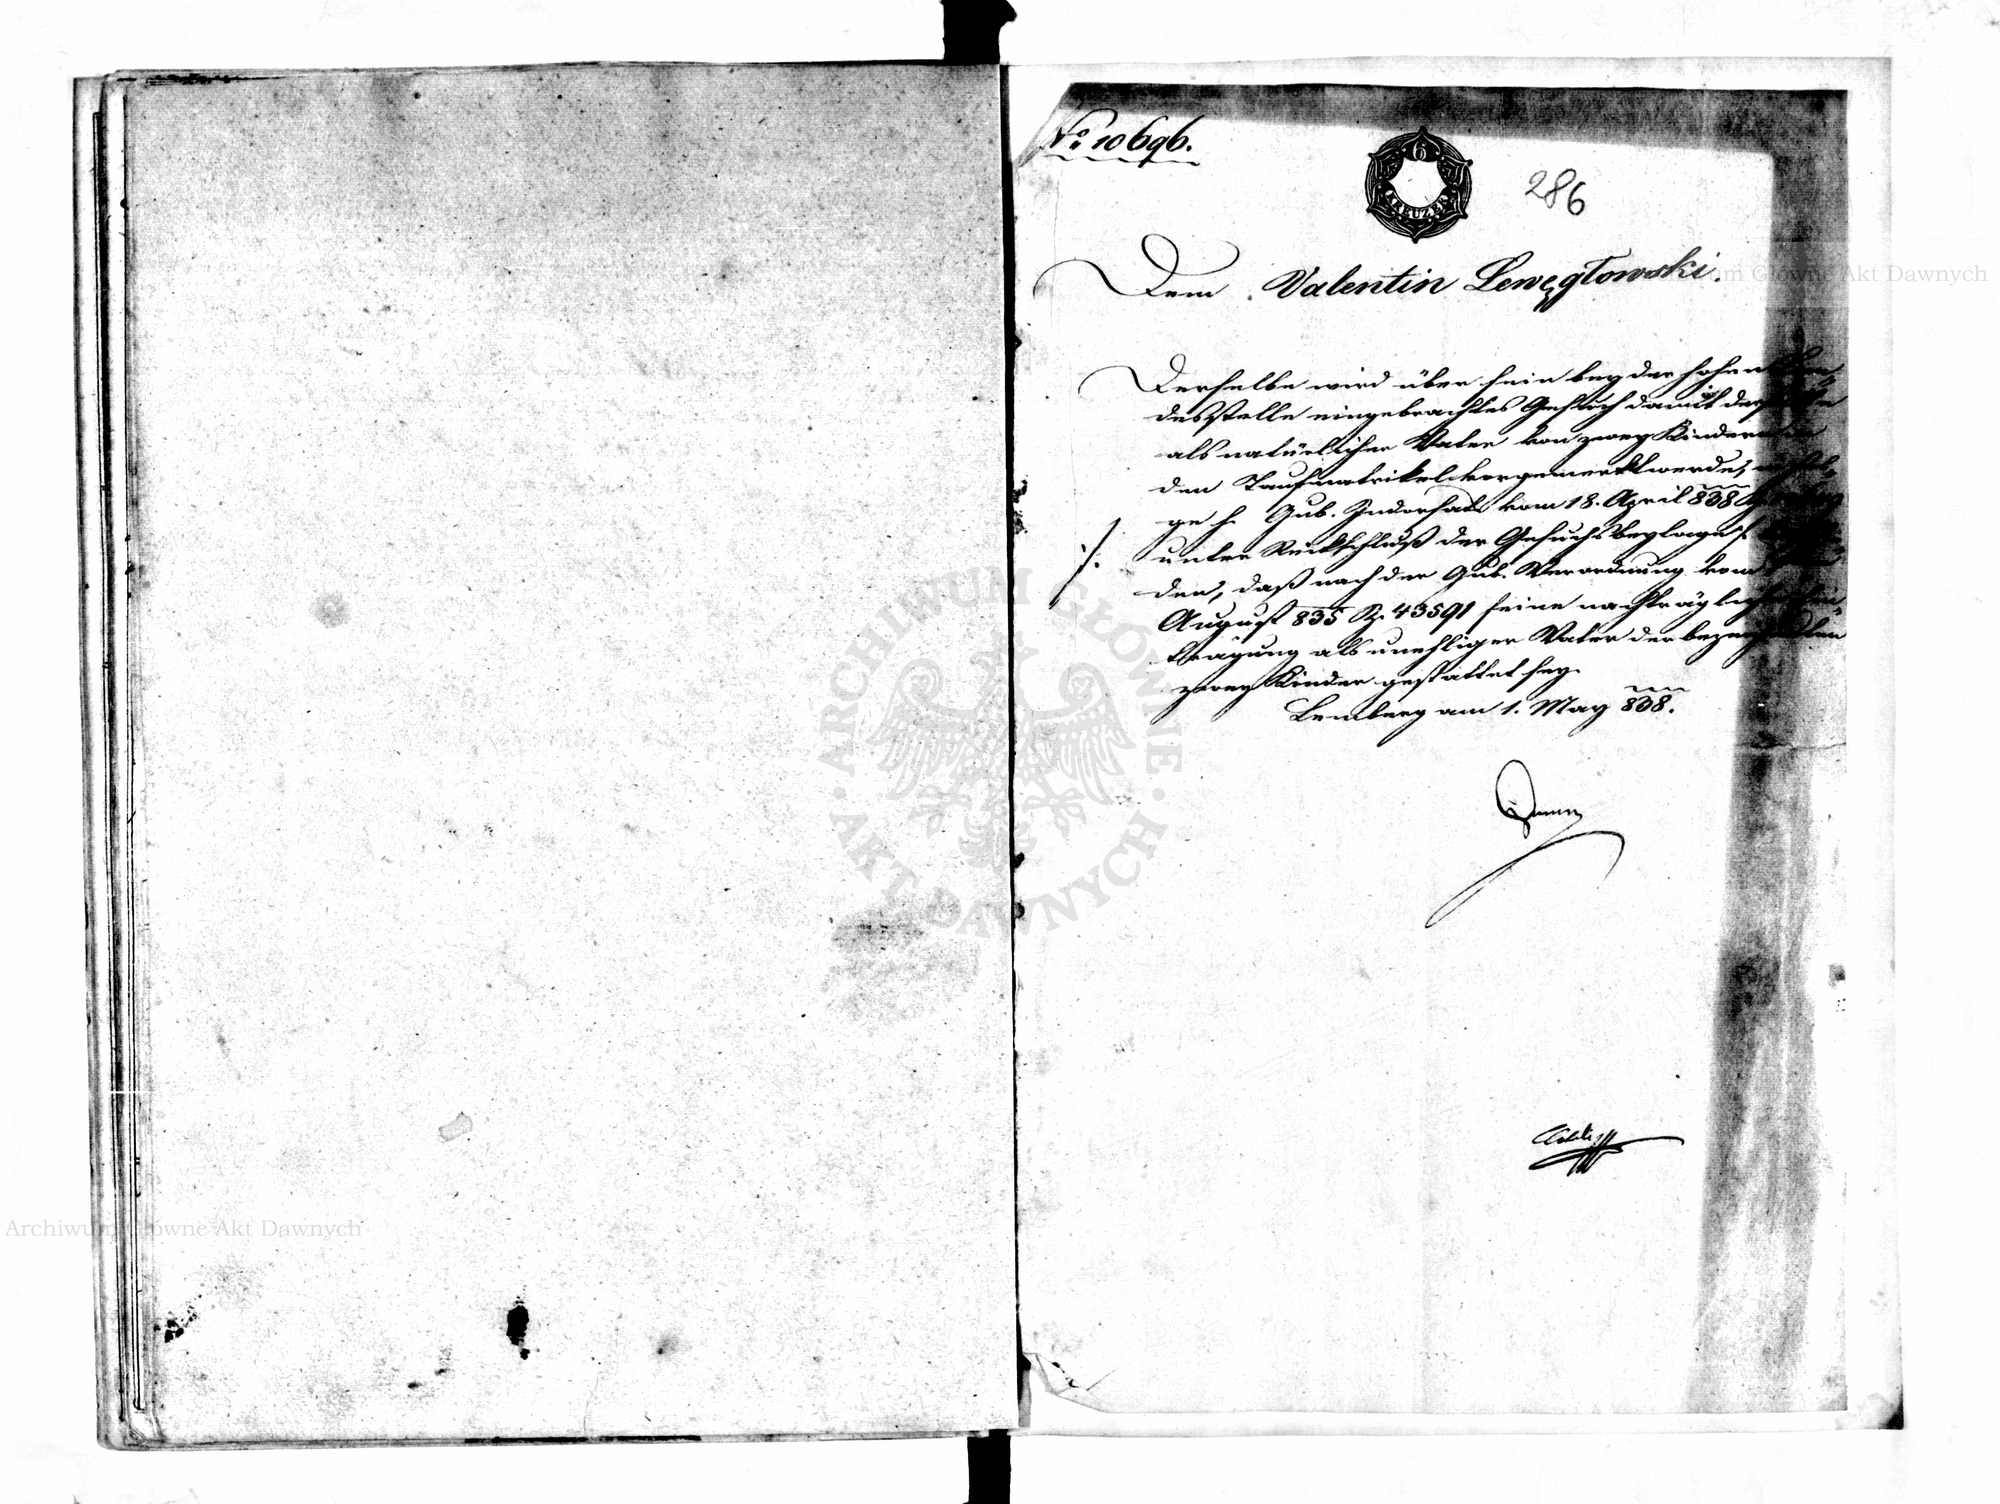 No 10696.
6
KREUZER
286
Dem Valentin Lewęgłowski.
Derselbe wird über sein bey der hohen Lan=
desstelle eingebrachtes Gesuch damit derselbe
als natürlicher Vater von zwey Kindern in
den Taufmatrikel vorgemerkt werde,
ge h. Gub. Indorsats vom 18. April 838
unter Rückschluß der Gesuchsbeylage
den, daß nach der Gub. Verordnung vom
August 835 Z. 43591 seine nachträgliche Ein=
tragung als unehliger Vater der bezeichneten
zwey Kinder gestattet sey.
Lemberg am 1. May 838.
ARCHIWUM GŁÓWNE AKT DAWNYCH
Archiwum Główne Akt Dawnych
Archiwum Główne Akt Dawnych